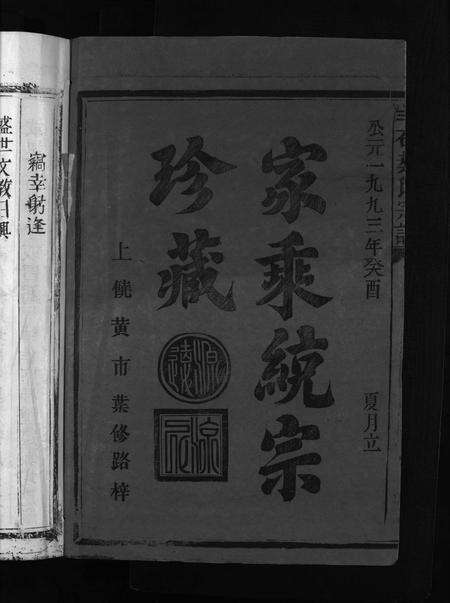 公元一九九三年癸酉 夏月立
家乘統宗
珍藏
源遠
流長
上饒黄市葉修路梓
竊幸躬逢
盛世文教日興